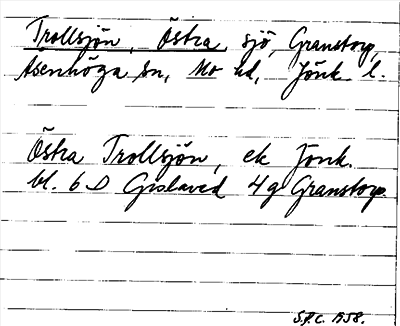 Trollsjön, Östra sjö, Granstorp,
Åsenhöga sn, Mo hd, Jönk. l.
Östra Trollsjön, ek Jönk.
bl. 6 D Gislaved 4g Granstorp.
1958.